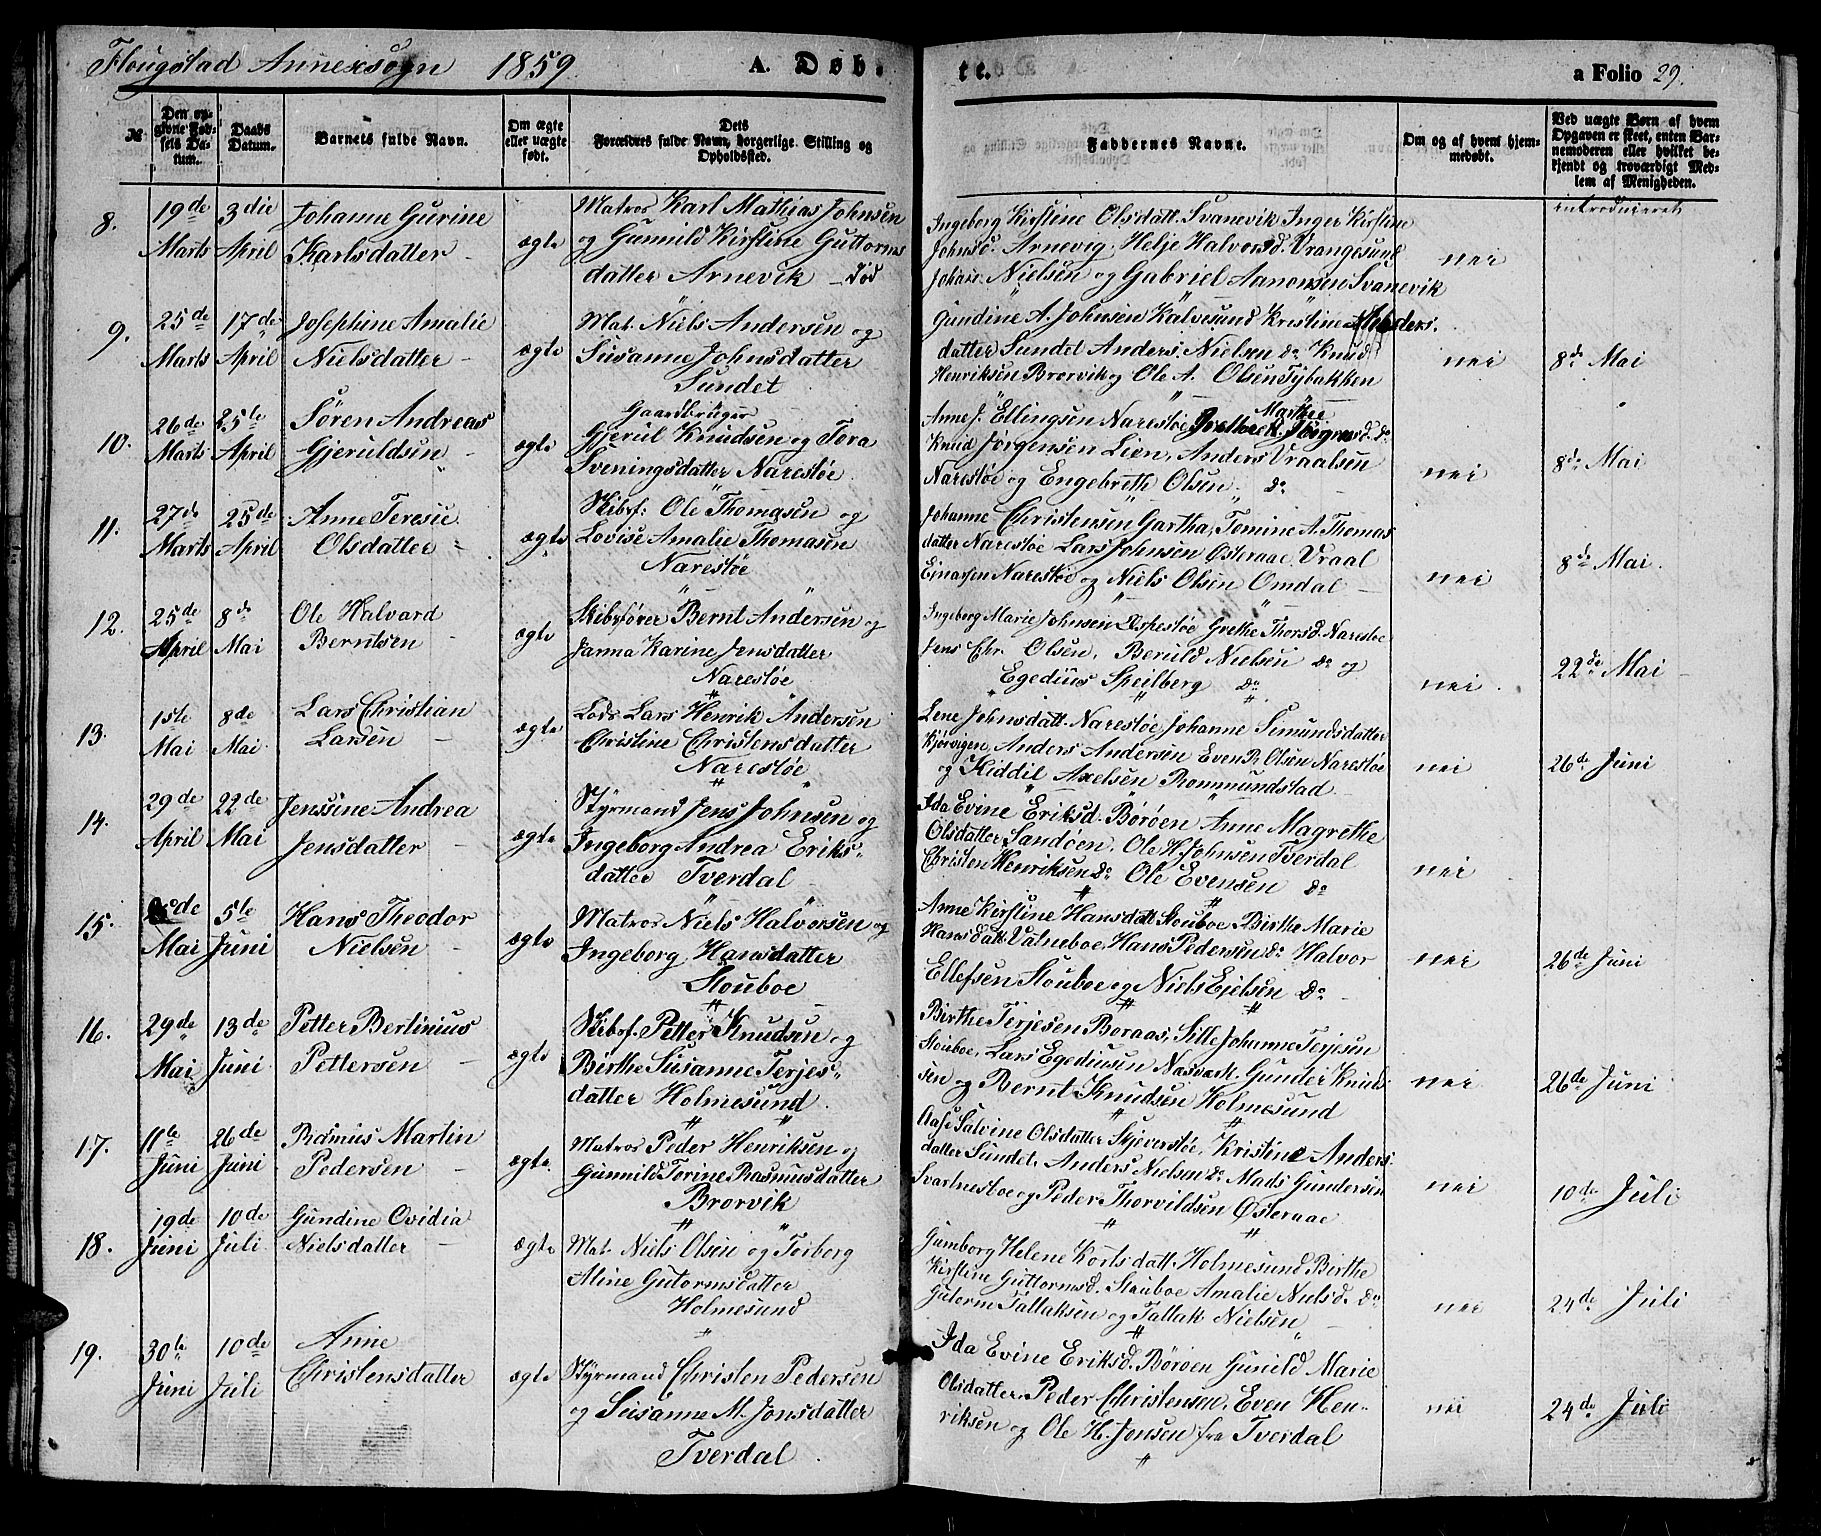 Flougstad Annexsogn 1859 A. Døb-
te. a Folio 29.
№
Den op-
givne Fød-
sels Da-
tum.
Daabs
Datum.
Barnets fulde Navn.
Om ægte
eller uægte
født.
Dets
Forældres fulde Navn, borgerlige Stilling og
Opholdssted.
Faddernes Navne.
Om og af hvem hjem-
medøbt.
Ved uægte Børn af hvem
Opgaven er skeet, enten Bar-
nemoderen eller hvilket be-
kjendt og troværdigt Med-
lem af Menigheden.
introduceret
8. 19de Marts 3die April
Johanne Gurine
Karlsdatter
ægte
Matros Karl Mathias Johnsen
og Gunnild Kirstine Guttorms
datter Arnevik – Død
Ingeborg Kirstine Olsdatt. Svanevik Inger Kirstine
Johnsd. Arnevig, Helje Halvorsd. Vrangesund
Johans Nielsen og Gabriel Aanonsen Svanevik
nei
9. 25de Marts 17de April
Josephine Amalie
Nielsdatter
ægte
Mat. Niels Andersen og
Susanne Johnsdatter
Sundet
Gundine A. Johnsen Kalvesund Kristine Anders.
datter Sundet Anders Nielsen do Knud
Henriksen Brorvik og Ole A. Olsen Tybakken
nei
8de Mai
10. 26de Marts 25te April
Søren Andreas
Gjeruldsen
ægte
Gaardbruger
Gjerul Knudsen og Tora
Sveningsdatter Narestøe
Anne J. Ellingsen Narestøe Marthe Jørgensd. do
Knud Jørgensen Lien, Anders Vraalsen
Narestøe og Engebreth Olsen do
nei
8de Mai
11. 27de Marts 25de April
Anne Teresie
Olsdatter
ægte
Skibsf: Ole Thomasen og
Lovise Amalie Thomasen
Narestøe
Johanne Christensen Gartha, Tomine A. Thomas
datter Narestøe Lars Johnsen Østeraae, Vraal
Ejnarsen Narestøe og Niels Olsen Omdal
nei
8de Mai.
12. 25de April 8de Mai
Ole Halvard
Berntsen
ægte
Skibsfører Bernt Andersen og
Janna Karine Jensdatter
Narestøe
Ingeborg Marie Johnsen Espestøe Grethe Thorsd. Narestøe
Jens Chr. Olsen, Beruld Nielsen do og
Egedius Speilberg do
nei.
22de Mai
13. 1ste Mai 8de Mai
Lars Christian
Larsen
ægte
Lods Lars Henrik Andersen
Christine Christensdatter
Narestøe
Lene Johnsdatt. Narestøe, Johanne Simundsdatter
Kjørvigen, Anders Andersen Even R. Olsen Narestøe
og Kiddil Axelsen Rommundstad
nei
26de Juni
14. 29de April 22de Mai
Jenssine Andrea
Jensdatter
ægte
Styrmand Jens Johnsen og
Ingeborg Andrea Eriks-
datter Tverdal
Ida Evine Eriksd. Børøen Anne Magrethe
Olsdatter Sandøen, Ole H. Johnsen Tverdal
Christen Henriksen do Ole Evensen do
nei
15. Mai 5te Juni
Hans Theodor
Nielsen
ægte
Matros Niels Halvorsen og
Ingeborg Hansdatter
Stouboe
Anne Kirstine Hansdatt Stouboe, Birthe Marie
Hansdatt. Valneboe, Hans Pedersen do Halvor
Ellefsen Stouboe og Niels Ejelsen do
nei
26de Juni
16. 29de Mai 13de Juni
Petter Bertinius
Pettersen
ægte
Skibsf. Petter Knudsen og
Birthe Susanne Terjes-
datter Holmesund.
Birthe Terjesen Boraas, Sille Johanne Terjesen
Stouboe, Lars Egediusen Nasvask. Gunder Knud-
sen og Bernt Knudsen Holmesund
nei
26de Juni
17. 11te Juni 26de Juni
Rasmus Martin
Pedersen
ægte.
Matros Peder Henriksen og
Gunnild Torine Rasmusdatter
Brorvik
Aase Salvine Olsdatter Skjeverstøe, Kristine Anders.
datter Sundet, Anders Nielsen do Mads Gundersen
Svartnesboe og Peder Thorvildsen Østeraae
nei
10de Juli
18. 19de Juni 10de Juli
Gundine Ovidia
Nielsdatter
ægte
Mat. Niels Olsen og Torborg
Aline Gutormsdatter
Holmesund
Gumborg Helene Kortsdatt. Holmesund, Birthe
Kirstine Guttormsd. Stouboe Amalie Nielsd. do
Gutorm Tallaksen og Tallak Nielsen
nei
24de Juli
19. 30te Juni 10de Juli
Anne
Christensdatter
ægte
Styrmand Christen Pedersen
og Susanne M. Jonsdatter
Tverdal
Ida Evine Eriksd. Børøen Gunild Marie
Olsdatter, Peder Christensen, Even Hen-
riksen og Ole H. Jonsen fra Tverdal
nei
24de Juli